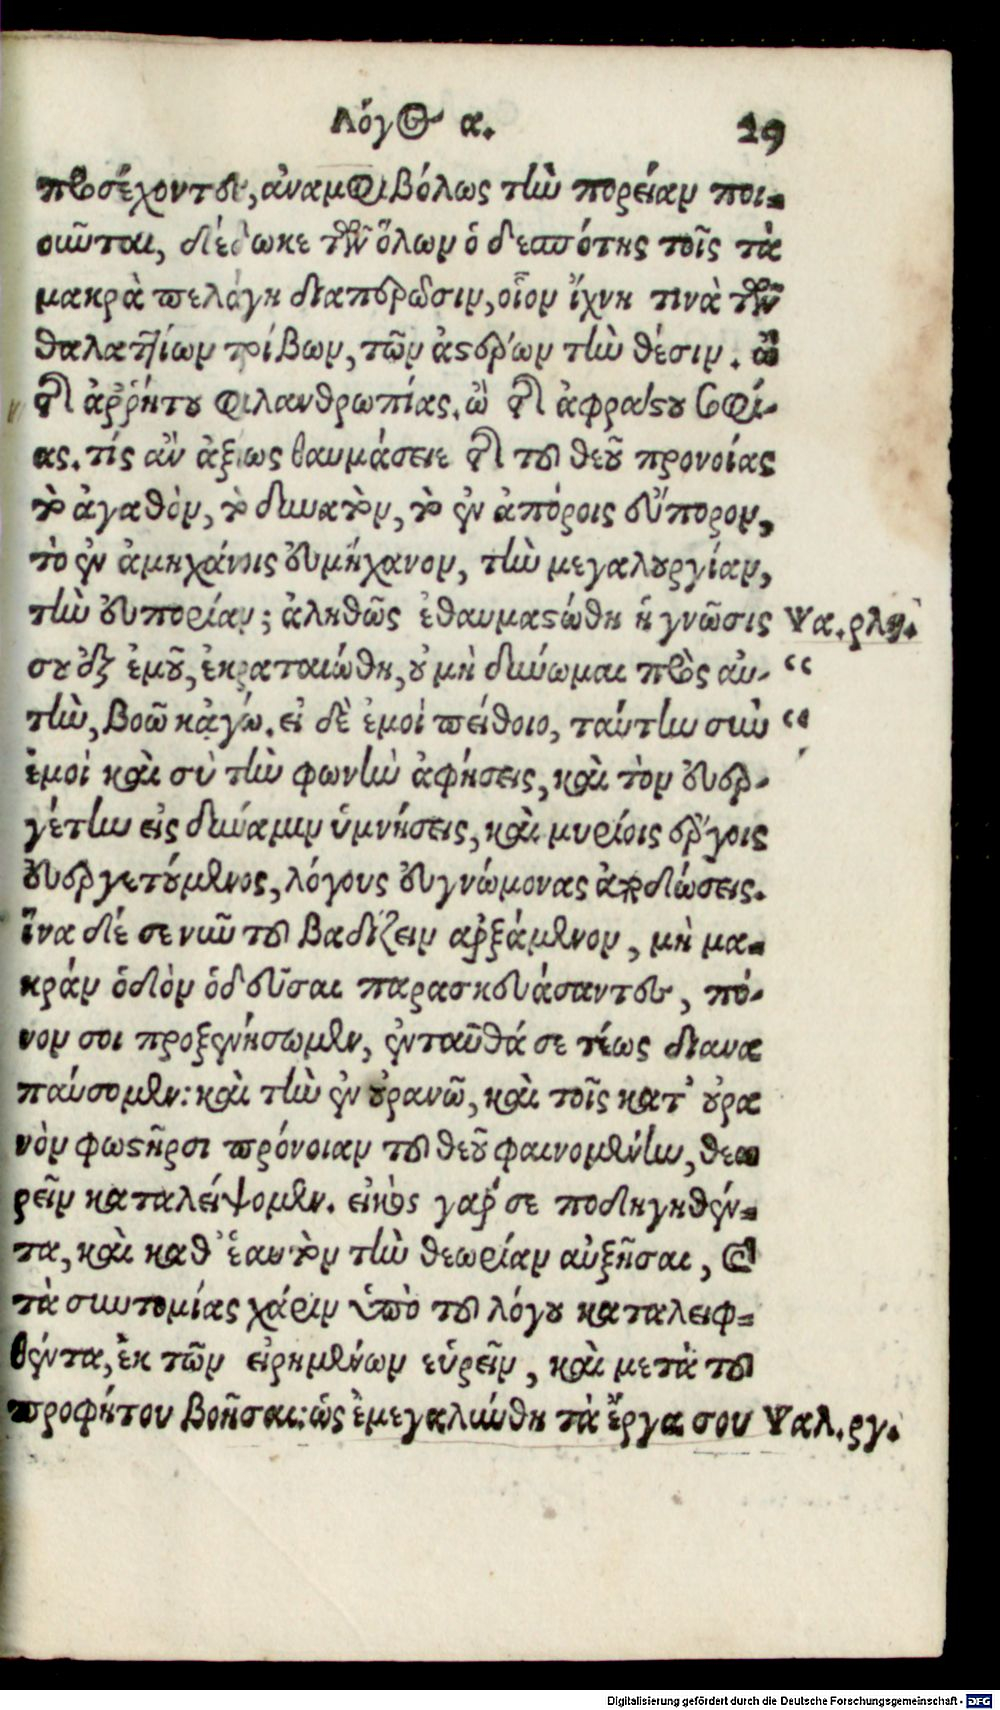 Λόγος α. 29
προσέχοντες, ἀναμφιβόλως τὴν πορείαν ποι-
οῦνται, δέδωκε τῶν ὅλων ὁ δεσπότης τοῖς τὰ
μακρὰ πελάγη διαπερῶσιν, οἷον ἴχνη τινὰ τῶν
θαλαττίων τρίβων, τῶν ἀστέρων τὴν θέσιν. ὢ
τῆς ἀρρήτου φιλανθρωπίας. ὢ τῆς ἀφράστου σοφί-
ας. τίς ἂν ἀξίως θαυμάσειε τῆς τοῦ θεοῦ προνοίας
τὸ ἀγαθὸν, τὸ δυνατὸν, τὸ ἐν ἀπόροις εὔπορον,
τὸ ἐν ἀμηχάνοις εὐμήχανον, τὴν μεγαλουργίαν,
τὴν εὐπορίαν; ἀληθῶς ἐθαυμαστώθη ἡ γνῶσις Ψα. ρλη.
σου ἐξ ἐμοῦ, ἐκραταιώθη, οὐ μὴ δύνωμαι πρὸς αὐ- “
τὴν, βοῶ κᾀγώ. εἰ δὲ ἐμοὶ πείθοιο, ταύτην σὺν “
ἐμοὶ καὶ σὺ τὴν φωνὴν ἀφήσεις, καὶ τὸν εὐερ-
γέτην εἰς δύναμιν ὑμνήσεις, καὶ μυρίοις ἔργοις
εὐεργετούμενος, λόγους εὐγνώμονας ἀποδώσεις.
ἵνα δέ σε νῦν τοῦ βαδίζειν ἀρξάμενον, μὴ μα-
κρὰν ὁδὸν ὁδεῦσαι παρασκευάσαντες, πό-
νον σοι προξενήσωμεν, ἐνταῦθά σε τέως διανα
παύσομεν: καὶ τὴν ἐν οὐρανῷ, καὶ τοῖς κατ' οὐρα
νὸν φωστῆρσι πρόνοιαν τοῦ θεοῦ φαινομένην, θεω
ρεῖν καταλείψομεν. εἰκὸς γάρ σε ποδηγηθέν-
τα, καὶ καθ' ἑαυτὸν τὴν θεωρίαν αὐξῆσαι, καὶ
τὰ συντομίας χάριν ὑπὸ τοῦ λόγου καταλειφ-
θέντα, ἐκ τῶν εἰρημένων εὑρεῖν, καὶ μετὰ τοῦ
προφήτου βοῆσαι: ὡς ἐμεγαλύνθη τὰ ἔργα σου Ψαλ. ργ.
Digitalisierung gefördert durch die Deutsche Forschungsgemeinschaft - DFG